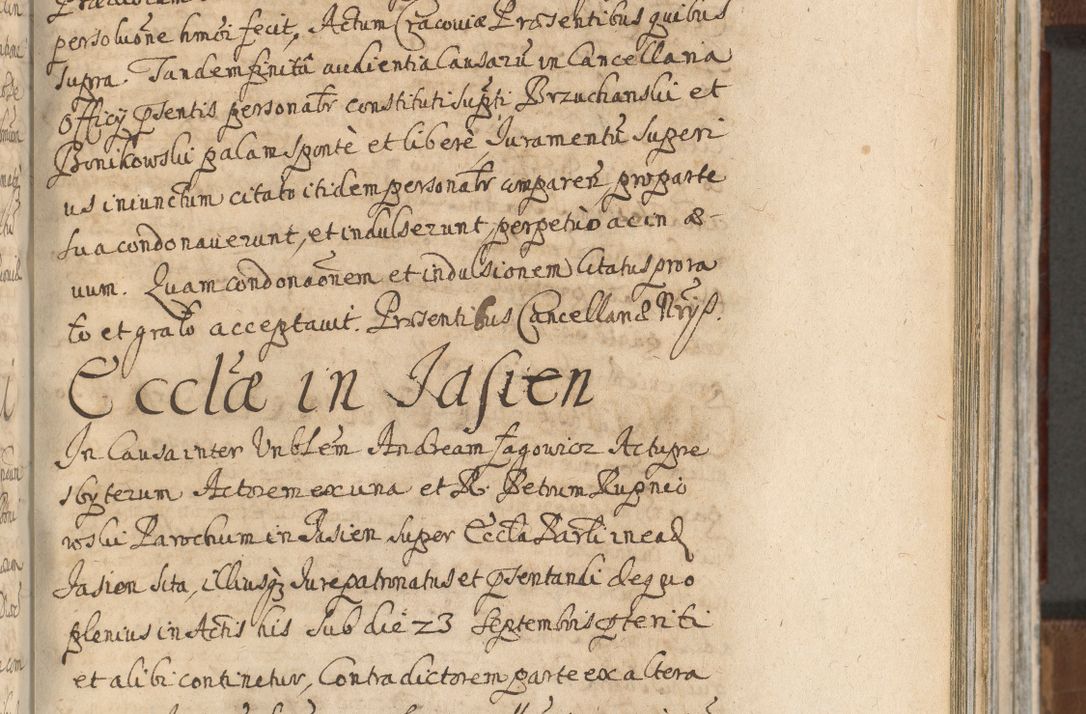 persoluõne hmõi fecit, Actum Cracoviæ Præsentibus quibus
supra. Tandem finitâ audientia Causarũ in Cancellaria
Officÿ pñsentis personalr constituti supti Brzuchanski et
Bonikowski palam sponte et liberè Iuramentũ superi
us iniunctum citato itidem personalr compareñ pro parte
sua condonaverunt, et indulserunt, perpetuò ac in æ-
vum. Quam condonaõnem et indulsionem Citatus pro ra
to et grato acceptavit. Præsentibus Cancellariæ Nrÿs.
Ecclã in Jasien
In Causa inter Vnblem Andream Jagowicz Actu pre
sbyterum Actorem ex una et R. Petrum Rupnio
wski Parochum in Jasien super Eccla Parli in ead
Jasien sita, illiusq Iurepatronatus et pñsentandi de quo
plenius in Actis his sub die 23 Septembris pteriti
et alibi continetur, Contradictorem parte ex altera